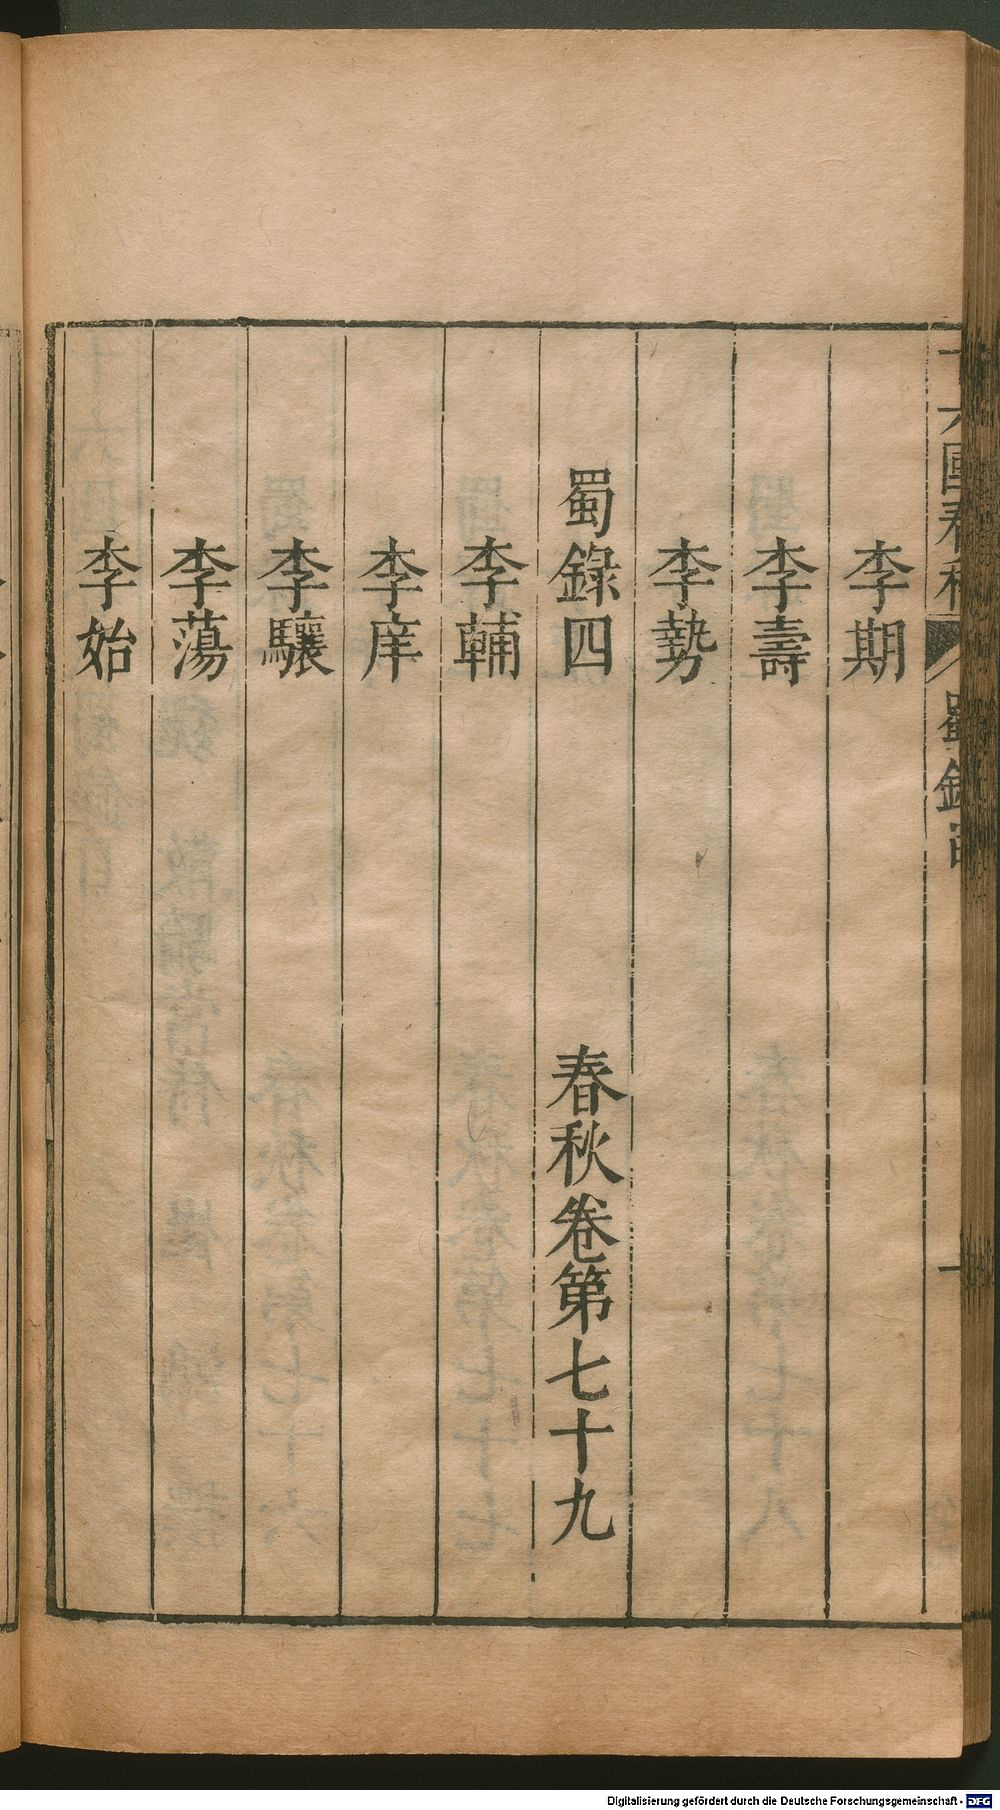 十六國春秋 蜀錄目 一
李期
李壽
李勢
蜀錄四 春秋卷第七十九
李輔
李庠
李驤
李蕩
李始
Digitalisierung gefördert durch die Deutsche Forschungsgemeinschaft - DFG